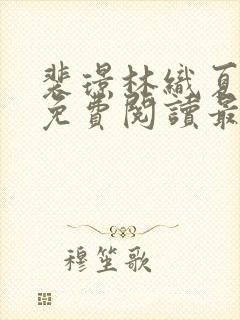 裴璟林織夏
免費閱讀最
穆笙歌